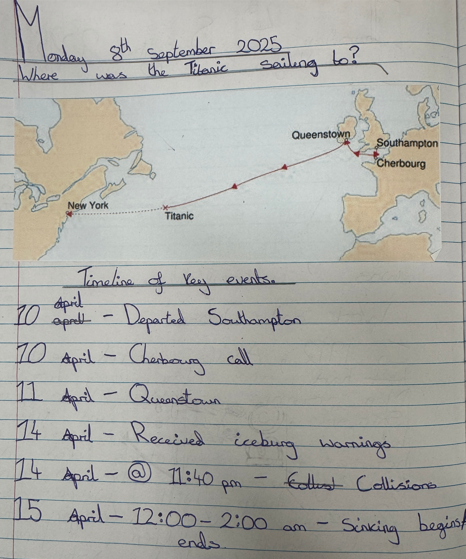 Monday 8th September 2025
Where was the Titanic sailing to?
Queenstown
Southampton
Cherbourg
New York
Titanic
Timeline of key events.
april
10 aprell - Departed Southampton
10 April - Cherbourg call
11 April - Queenstown
14 April - Received iceburg warnings
14 April - @ 11:40 pm - Collust Collisions
15 April - 12:00 - 2:00 am - Sinking begins/
ends